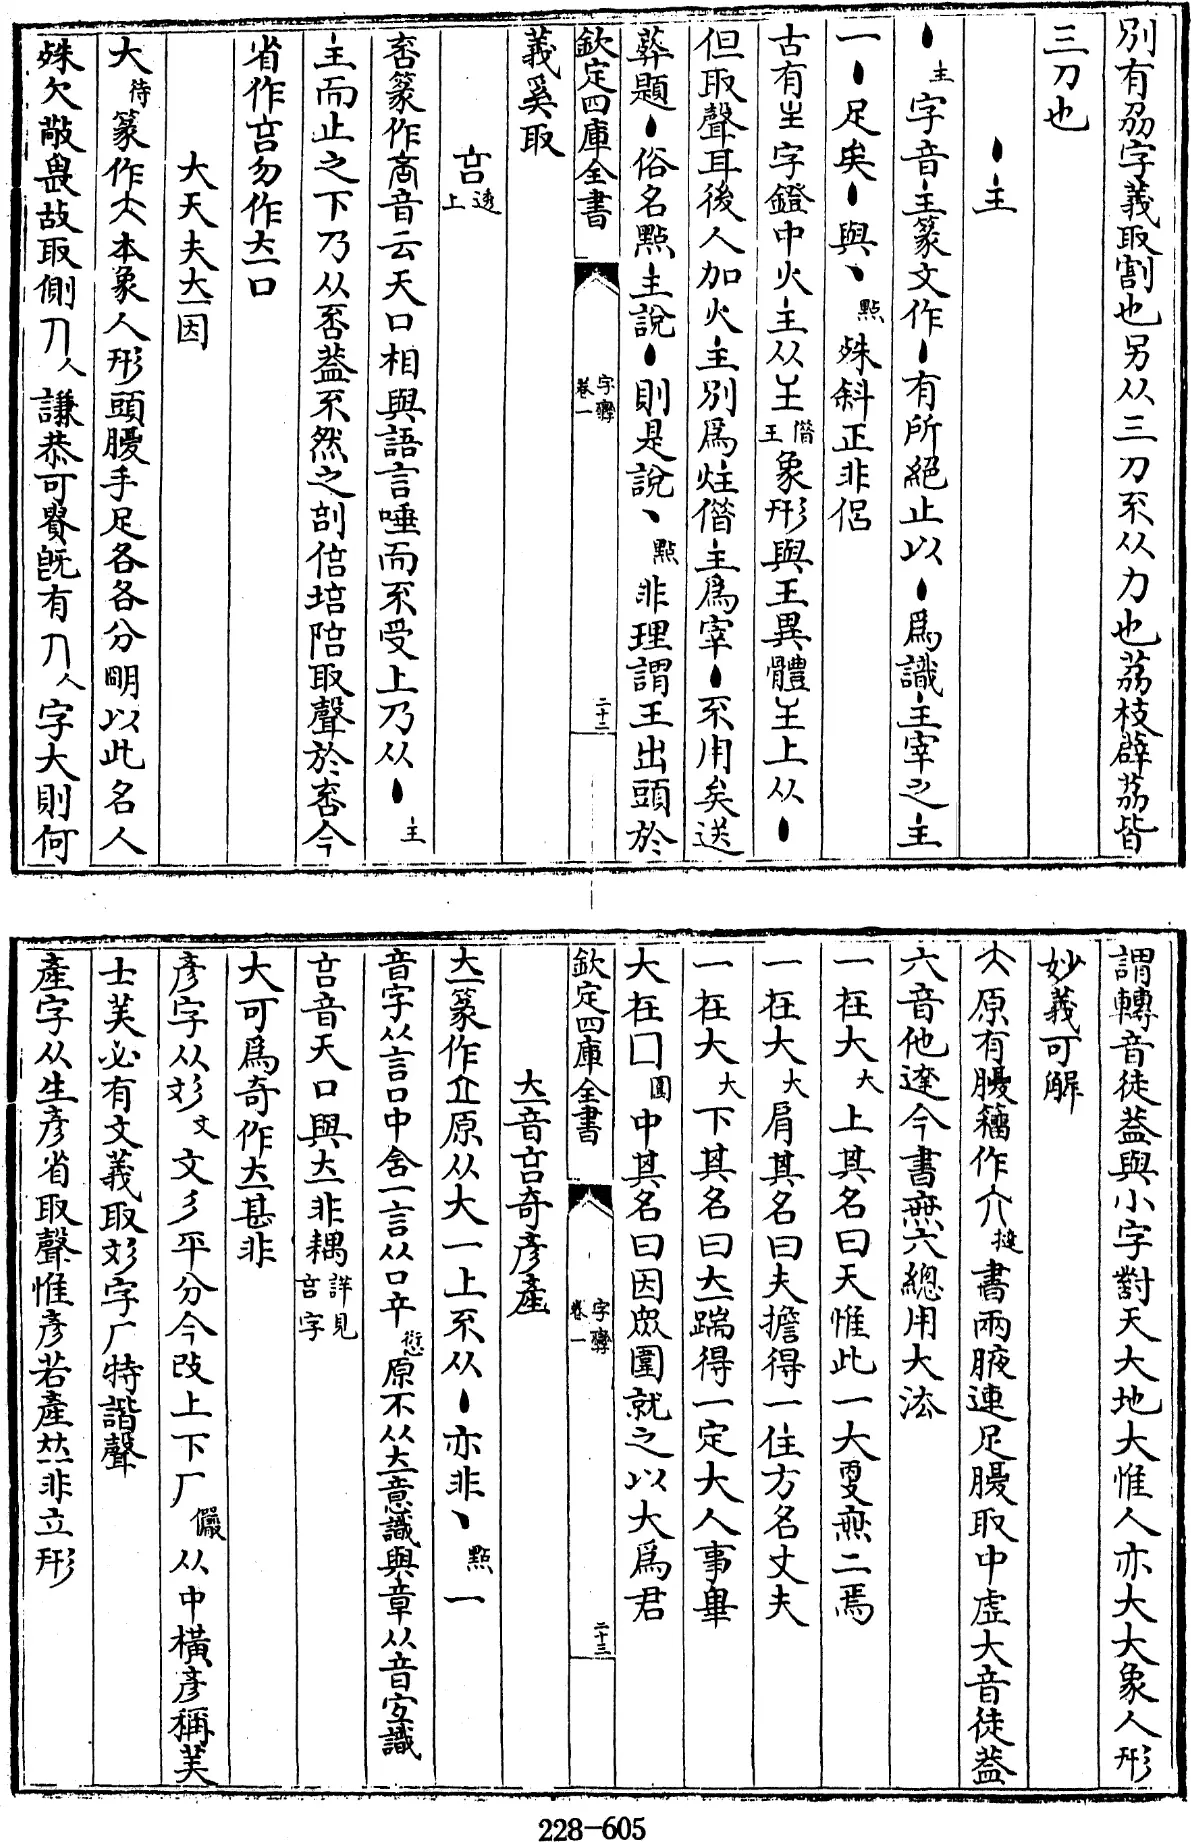 別有刕字義取割也另从三刀不从力也荔枝辟荔皆
三刀也
丶主
丶主字音主篆文作丶有所絕止以丶爲識主宰之主
一丶足矣丶與丶點殊斜正非侣
古有主字鐙中火主从王借王象形與王異體主上从丶
但取聲耳後人加火主別爲炷借主爲宰丶不用矣送
葬題丶俗名點主說丶則是說丶點非理謂王出頭於
欽定四庫全書
字孿
卷一
二十二
義奚取
咅透上
咅篆作咅音云天口相與語言唾而不受上乃从丶主
主而止之下乃从否蓋不然之剖倍培陪取聲於咅今
省作咅勿作立口
大天夫立因
大待篆作大本象人形頭臂手足各各分明以此名人
殊欠敬畏故取側人謙恭可貴旣有人字大則何
謂轉音徒蓋與小字對天大地大惟人亦大大象人形
妙義可解
大原有臂籒作介撻書兩腋連足臂取中虛大音徒蓋
六音他達今書無六總用大法
一在大大上其名曰天惟此一大更無二焉
一在大大肩其名曰夫擔得一住方名丈夫
一在大大下其名曰立踹得一定大人事畢
大在囗圍中其名曰因眾圍就之以大爲君
欽定四庫全書
字孿
卷一
二十三
立音咅奇彥產
立篆作立原从大一上不从丶亦非丶點一
音字从言口中含一言从口䇂愆原不从立意識與章从音宜識
咅音天口與立非耦詳見咅字
大可爲奇作立甚非
彥字从彣文文彡平分今改上下厂儼从中橫彥稱美
士美必有文義取彣字厂特諧聲
產字从生彥省取聲惟彥若產竝非立形
228-605